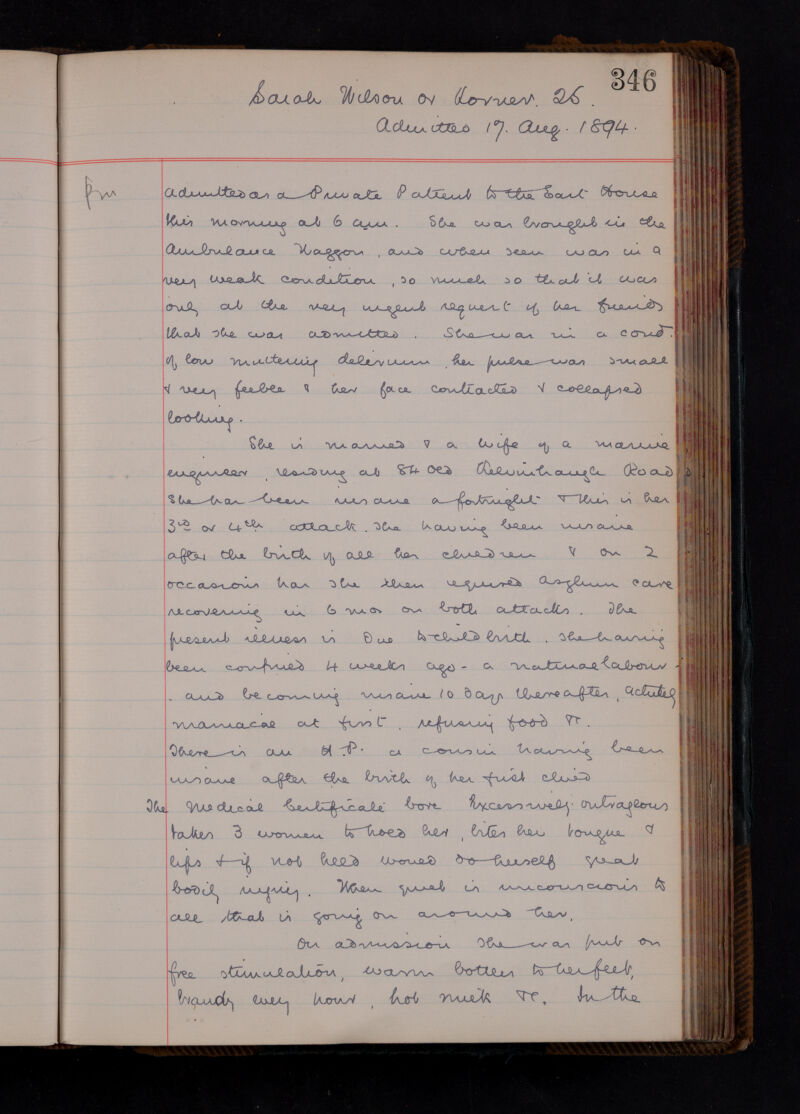 346
Sarah Wilson or Horner. 26.
Admitted 17. Aug. 1894.
admitted as a Private Patient to the East House
this morning at 6 am. She was brought in the
Ambulance Waggon, and when seen was in a
very weak condition, so much so that it was
only at the very urgent request of her friends
that she was admitted. She was in a cond.
of low muttering delerium, her pulse was small
& very feeble & her face contracted & collapsed
looking.
She is married & a wife of a marine
engineer, residing at 84 Old Kelvinhaugh Road
She has been insane a fortnight & this is her
3rd or 4th attack. She having been insane
after the birth of all her children & on 2
occasions has she then required asylum care
recovering in 6 mos on both attacks. The
present illness is Due to childbirth. She having
been confined 4 weeks ago - a natural labour -
. and becoming insane 10 days thereafter, acutely
maniacal at first, refusing food &c.
There is an H.P. a cousin having been
insane after the birth of her first child
The Medical Certificate bore Excessively outrageous
takes 3 women to hold her, bites her tongue &
lips & if not held would do herself great
bodily injury. When quiet is unconscious to
all that is going on around her.
On admission she was put on
free stimulation, warm bottles to her feet,
brandy every hour, hot milk &c. In the